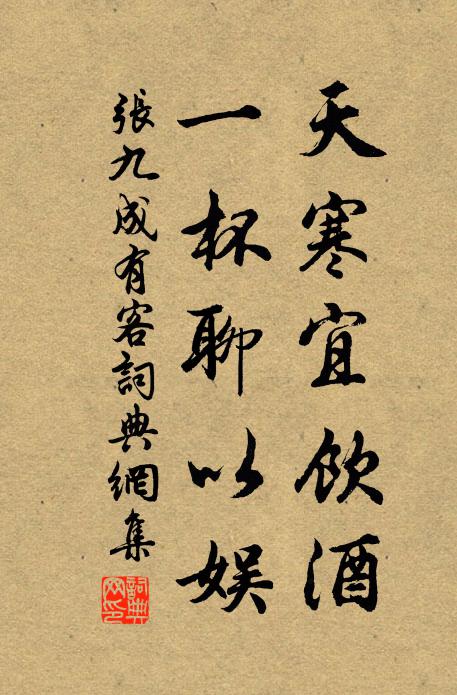 天寒宜飲酒
一杯聊以娱
張九成有客詞典網集
詞典
网印